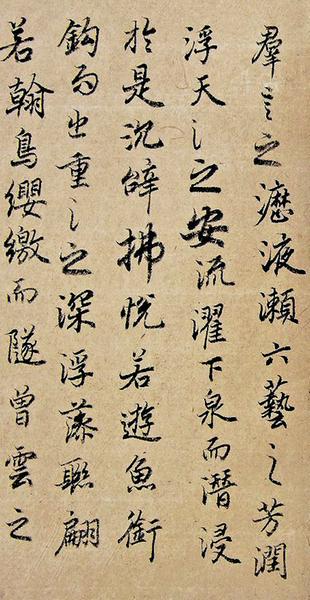 羣言之瀝液漱六藝之芳潤
浮天淵之安流濯下泉而潛浸
於是沉辭拂悅若遊魚銜
鈎而出重淵之深浮藻聯翩
若翰鳥纓繳而隧曾雲之